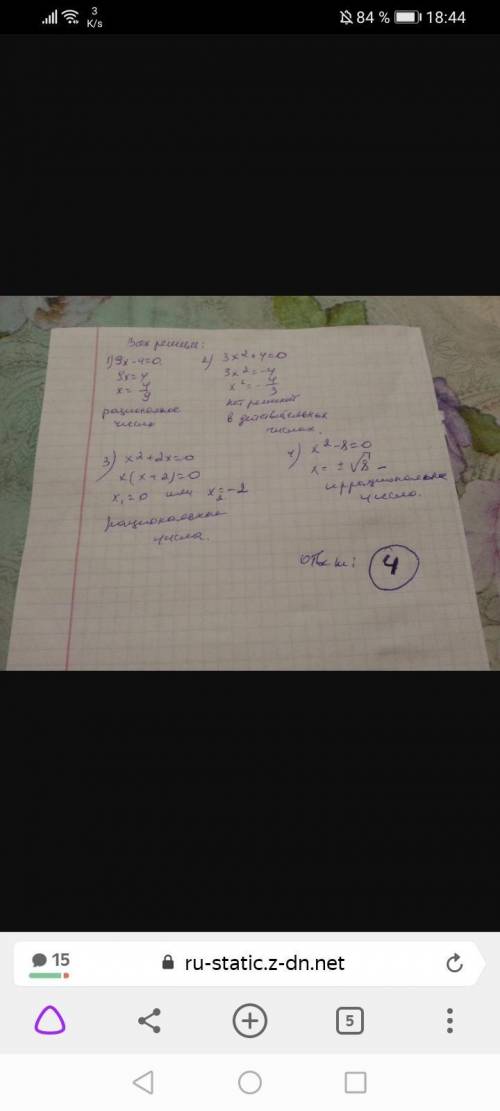 3
K/s
84 %
18:44
решение:
1) 9x-4=0
9x=4
x=4/9
рациональное
число
2) 3x²+4=0
3x²=-4
x²=-4/3
нет решений
в действительных
числах.
3) x²+2x=0
x(x+2)=0
x₁=0 или x₂=-2
рациональные
числа.
4) x²-8=0
x=±√8 -
иррациональное
число.
Ответ: 4
15
ru-static.z-dn.net
5